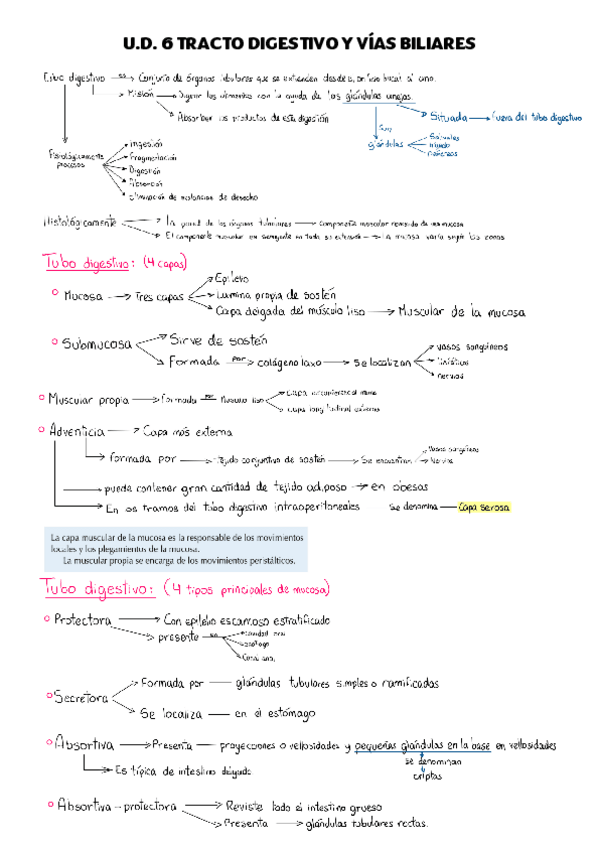 U.D. 6 TRACTO DIGESTIVO Y VÍAS BILIARES
digestivo → Conjunto de órganos tubulares que se extienden desde la bucal al ano.
Misión → los alimentos con la ayuda de las glándulas anejas.
Situada → Fuera del tubo digestivo
Absorber los productos de esta digestión
Son
glándulas
Salivales
Hígado
Páncreas
Fisiológicamente
procesos
Ingestión
Fragmentación
Digestión
Absorción
Eliminación de sustancias de desecho
Histológicamente → La pared de los órganos tubulares → Componente muscular revestido de una mucosa
El componente muscular es semejante en toda su extensión → La mucosa varía según las zonas
Tubo digestivo: (4 capas)
Mucosa → Tres capas
Epitelio
Lámina propia de sostén
Capa delgada del músculo liso → Muscular de la mucosa
Submucosa
Sirve de sostén
Formada por → colágeno laxo → Se localizan
vasos sanguíneos
linfáticos
nervios
Muscular propia → formada por → Músculo liso
Capa circunferencial interna
Capa longitudinal externa
Adventicia → Capa más externa
formada por → tejido conjuntivo de sostén → Se encuentran
Vasos sanguíneos
Nervios
puede contener gran cantidad de tejido adiposo → en obesas
En los tramos del tubo digestivo intraperitoneales se denomina — Capa serosa
La capa muscular de la mucosa es la responsable de los movimientos
locales y los plegamientos de la mucosa.
La muscular propia se encarga de los movimientos peristálticos.
Tubo digestivo: (4 tipos principales de mucosa)
Protectora → Con epitelio escamoso estratificado
presente en
cavidad oral
esófago
Canal anal
Secretora
Formada por — glándulas tubulares simples o ramificadas
Se localiza — en el estómago
Absortiva → Presenta — proyecciones o vellosidades y pequeñas glándulas en la base en vellosidades
se denominan
criptas
Es típica de intestino delgado
Absortiva - protectora → Reviste todo el intestino grueso
Presenta → glándulas tubulares rectas.